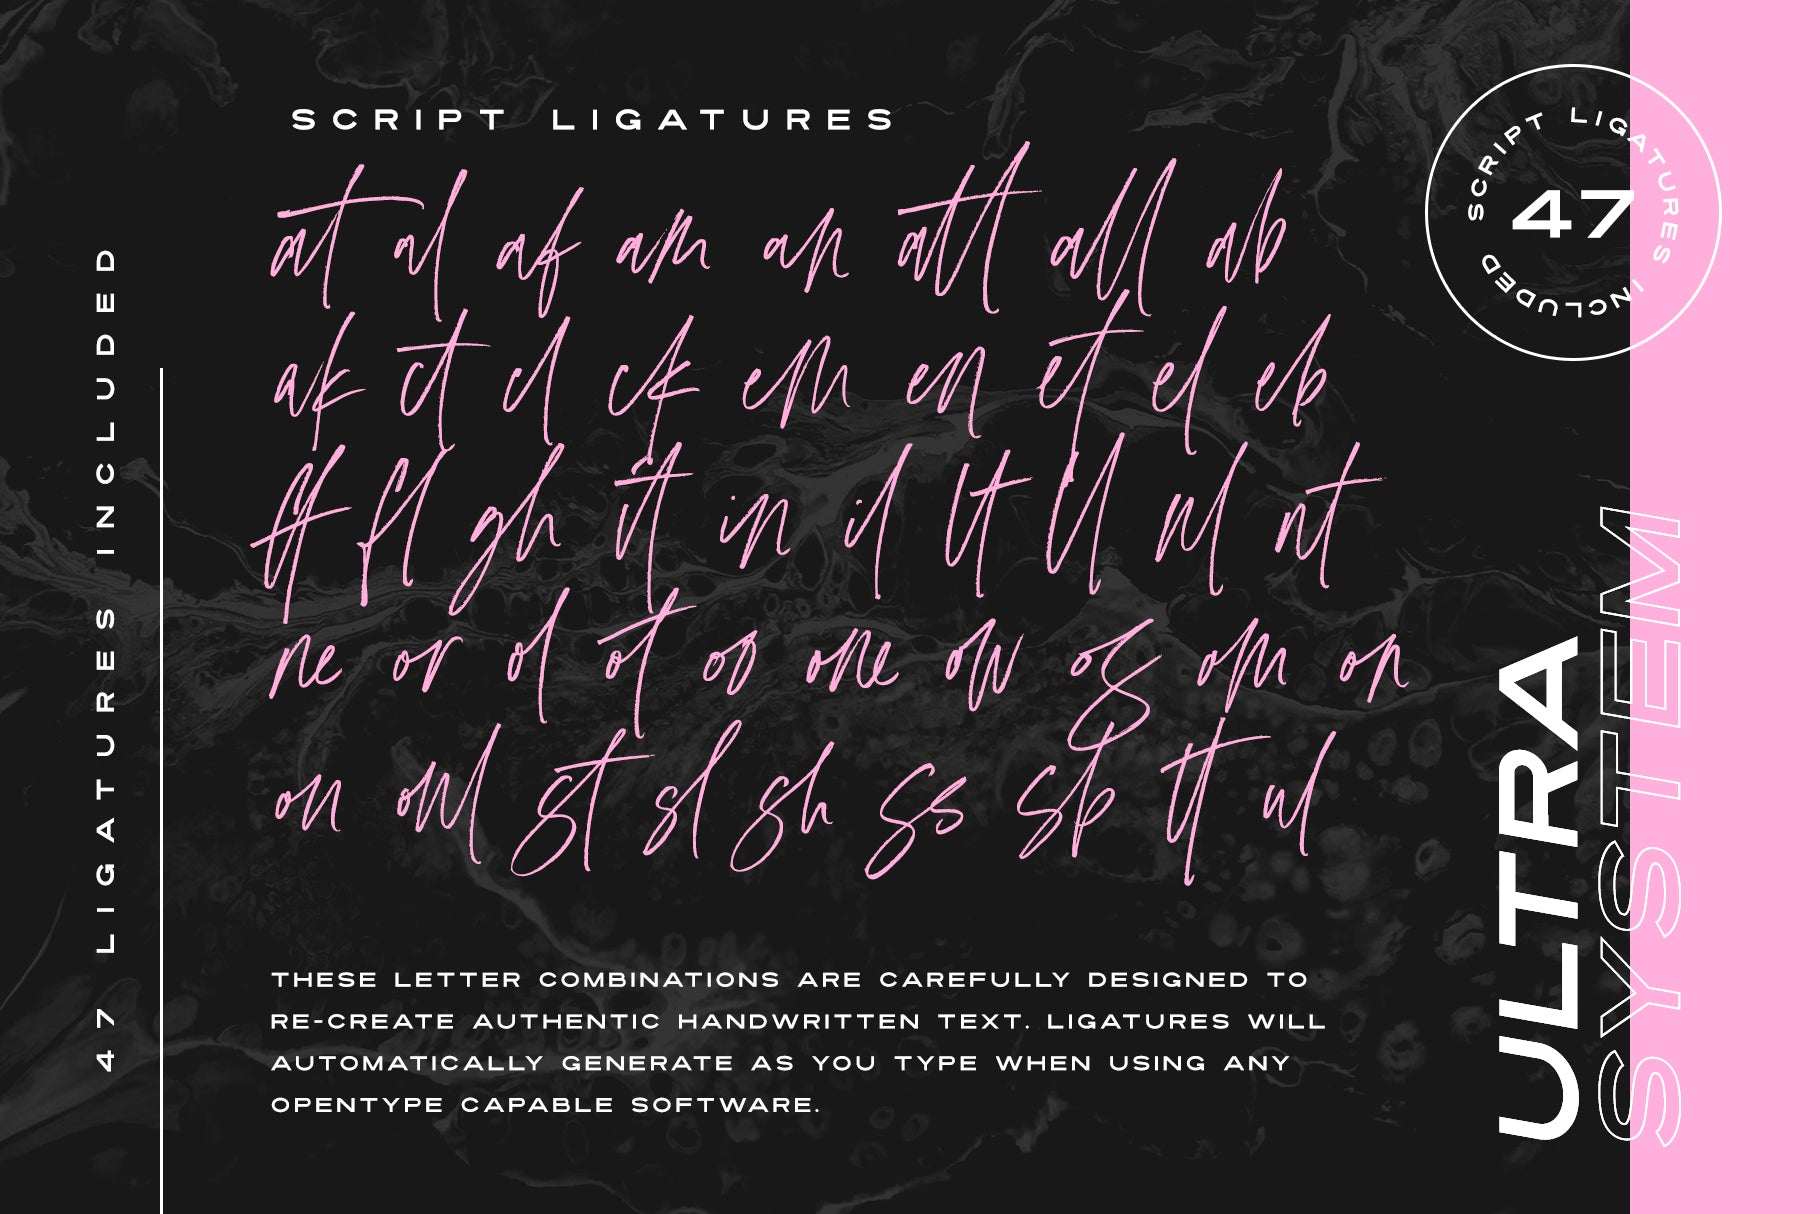 SCRIPT LIGATURES
at al af am an att all ab
ak ct cl ck em en et el eb
ff fl gh it in il lt ll nl nt
ne or ol ot oo one ow og om on
on onl st sl sh ss sb tt ul
THESE LETTER COMBINATIONS ARE CAREFULLY DESIGNED TO
RE-CREATE AUTHENTIC HANDWRITTEN TEXT. LIGATURES WILL
AUTOMATICALLY GENERATE AS YOU TYPE WHEN USING ANY
OPENTYPE CAPABLE SOFTWARE.
47 LIGATURES INCLUDED
SCRIPT LIGATURES
47
INCLUDED
ULTRA
SYSTEM